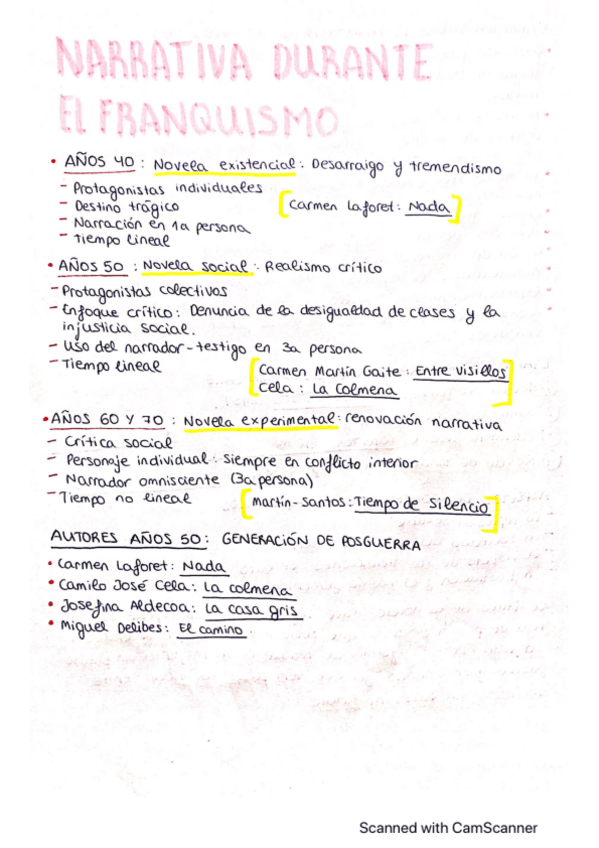 NARRATIVA DURANTE
EL FRANQUISMO
• AÑOS 40 : Novela existencial : Desarraigo y tremendismo
- Protagonistas individuales
- Destino trágico
[Carmen Laforet : Nada]
- Narración en 1a persona
- Tiempo lineal
• AÑOS 50 : Novela social : Realismo crítico
- Protagonistas colectivos
- Enfoque crítico : Denuncia de la desigualdad de clases y la
injusticia social.
- Uso del narrador-testigo en 3a persona
- Tiempo lineal
[Carmen Martín Gaite : Entre visillos
Cela : La Colmena]
• AÑOS 60 Y 70 : Novela experimental : renovación narrativa
- Crítica social
- Personaje individual : Siempre en conflicto interior
- Narrador omnisciente (3a persona)
- Tiempo no lineal
[Martín-Santos : Tiempo de Silencio]
AUTORES AÑOS 50 : GENERACIÓN DE POSGUERRA
• Carmen Laforet : Nada
• Camilo José Cela : La colmena
• Josefina Aldecoa : La casa gris
• Miguel Delibes : El camino.
Scanned with CamScanner